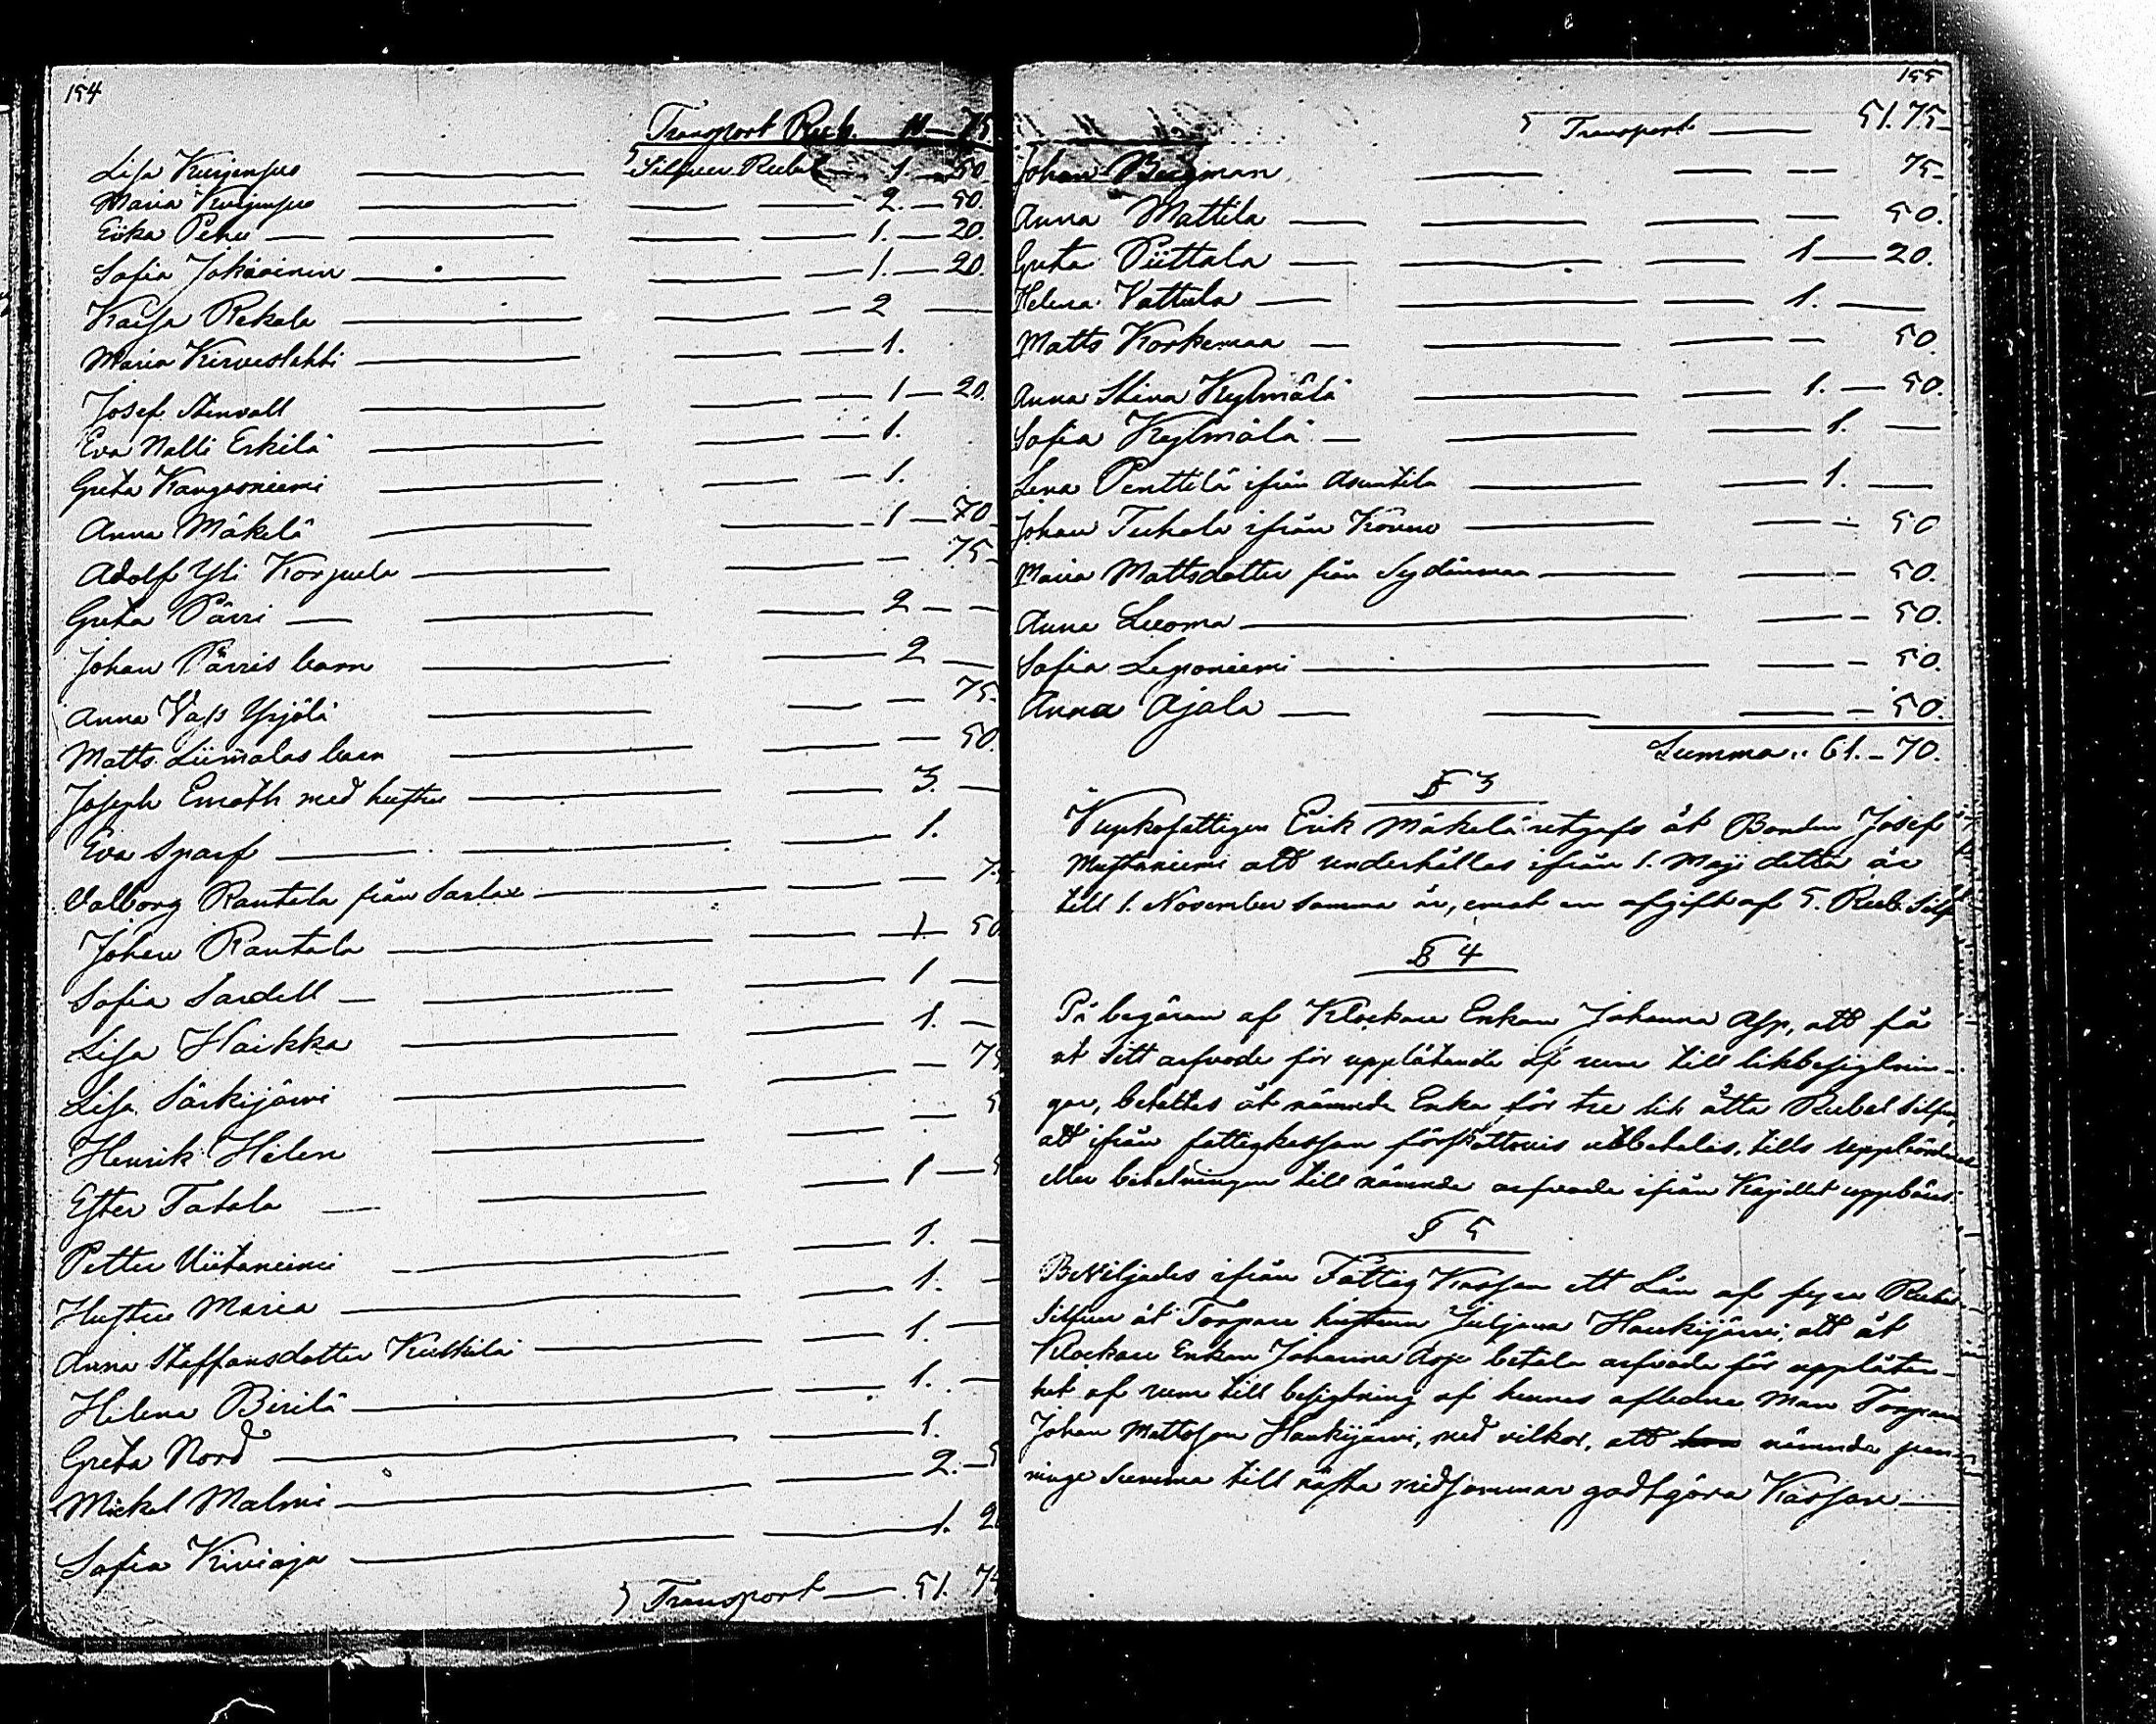 154
Transport Rub. 11 — 75
Lisa Kurjenpes — Silfver Rubel 1. — 50
Maria Kurjenpes — 2. — 50.
Eka Penu — 1. — 20.
Sofia Jokioinen — 1. — 20.
Kaisa Rekola — 2 —
Maria Kirveslahti — 1.
Josef Stenvall — 1 — 20.
Eva Nalli Erkilä — 1.
Greta Kangasniemi — 1.
Anna Mäkelä — 1 — 70
Adolf Yli Korpula — 75
Greta Pärri — 2 — —
Johan Pärris barn — 2 —
Anna Vass Yrjölä — 75.
Matts Liimalas barn — 50.
Joseph Emeth med hustru — 3. —
Eva Sparf — 1.
Valborg Rantala från Saxlax — 7
Johan Rantala — 1 50
Sofia Sardell — 1 —
Lisa Haikka — 1. —
Lisa Särkijärvi — 75
Henrik Hilen — 5
Ester Tatala — 1 — 5
Petter Viitaniemi — 1. —
Hustru Maria — 1. —
Anna Staffansdotter Kulkilä — 1. —
Helena Birilä — 1. —
Greta Nord — 1.
Mickel Malmi — 2. — 5
Sofia Kiviaja — 1. 2
Transport — 51. 75
155
Transport — 51.75
Johan Bergman — 75
Anna Mattila — 50.
Greta Piittala — 1 — 20.
Helena Vattula — 1. —
Matts Korkemaa — 50
Anna Stina Kylmälä — 1. — 50.
Sofia Kylmälä — 1. —
Lena Penttilä ifrån Asuntila — 1. —
Johan Tuhala ifrån Könno — 50
Maria Mattsdotter från Sydänmaa — 50.
Anna Luoma — 50.
Sofia Leponiemi — 50.
Anna Ajala — 50.
Summa.. 61. — 70.
§ 3
Krupkofattigen Erik Mäkelä utgafs åt Bonden Josef
Mustaniemi att underhållas ifrån 1. Maji detta år
till 1. November samma år, emot en afgift af 5. Rub. Silf
§ 4
På begäran af Klockare Enkan Johanna Asp, att få
ut sitt arfvode för upplåtande af rum till likbesigtnin-
gar, betaltes åt nämnde Enka för tre lik åtta Rubel Silfver
att ifrån fattigkassan förskottsvis utbetalas, tills uppbörden
eller betalningen till nämnde arfvode ifrån Kapellet uppbäres.
§ 5
Beviljades ifrån Fattig Kassan ett Lån af fyra Rubel
Silfver åt Torpare hustrun Juljana Haukijärvi, att åt
Klockare Enkan Johanna Asp betala arfvode för upplåtan-
het af rum till besigtning af hennes aflidne Man Torparen
Johan Mattsson Haukijärvi, med vilkor, att nämnde pen-
ninge Summa till nästa midsommar godtgöra Kassan —